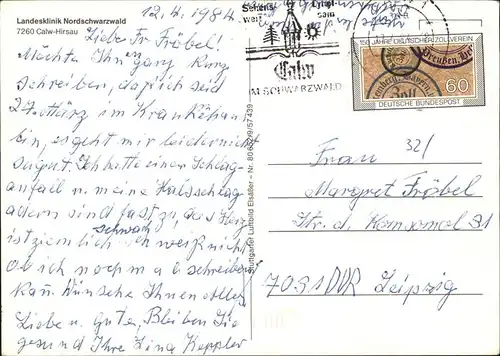 Landesklinik Nordschwarzwald
7260 Calw-Hirsau
12.4.1984
Liebe Fr Fröbel!
Möchte Ihnen ganz kurz
schreiben, daß ich seit
27 März im Krankenhaus
bin, es geht mir leider nicht
so gut. Ich hatte einen Schlag-
anfall u. meine Halsschlag
adern sind fast zu, das Herz
ist ziemlich schwach weiß nicht
ob ich noch mal schreiben
kann. Wünsche Ihnen alles
Liebe u. Gute, Bleiben Sie
gesund Ihre Lina Keppler
Stuttgarter Luftbild Elsäßer
Calw
IM SCHWARZWALD
150 JAHRE DEUTSCHER ZOLLVEREIN
Preußen
60
DEUTSCHE BUNDESPOST
32/
Frau
Margret Fröbel
Str. d. Komsomol 31
7031 DDR Leipzig